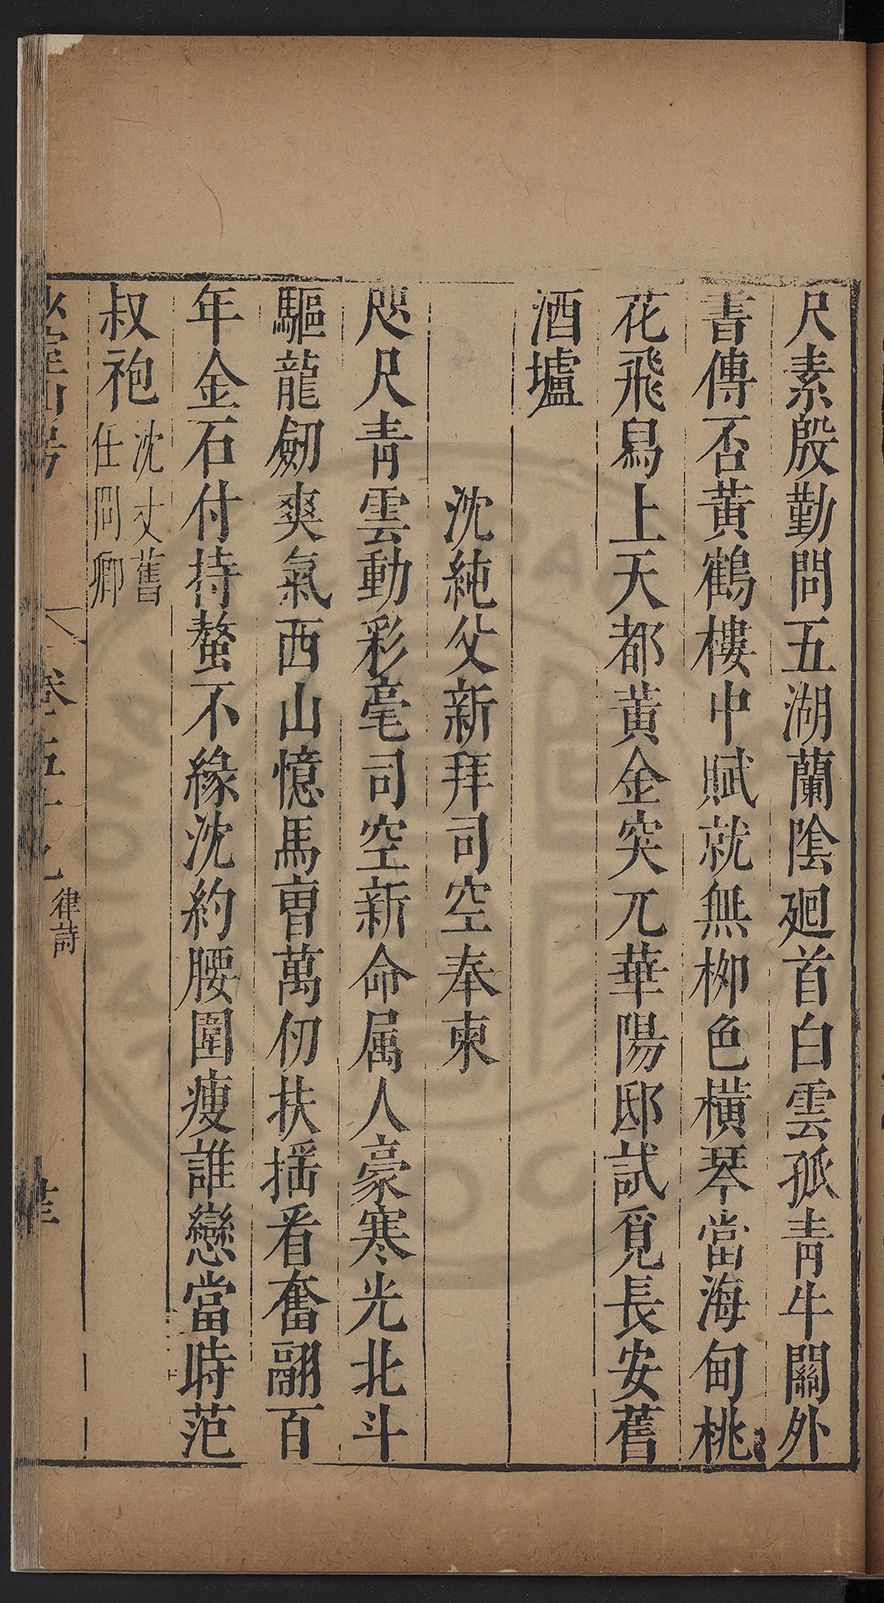 尺素殷勤問五湖蘭陰廻首白雲孤青牛關外
書傳否黃鶴樓中賦就無柳色橫琴當海甸桃
花飛舄上天都黃金突兀華陽邸試覓長安舊
酒壚
沈純父新拜司空奉柬
咫尺青雲動彩毫司空新命属人豪寒光北斗
驅龍劒爽氣西山憶馬曹萬仞扶揺看奮翮百
年金石付持螯不緣沈約腰圍瘦誰戀當時范
叔袍
沈丈舊
任冏卿
卷五十
律詩